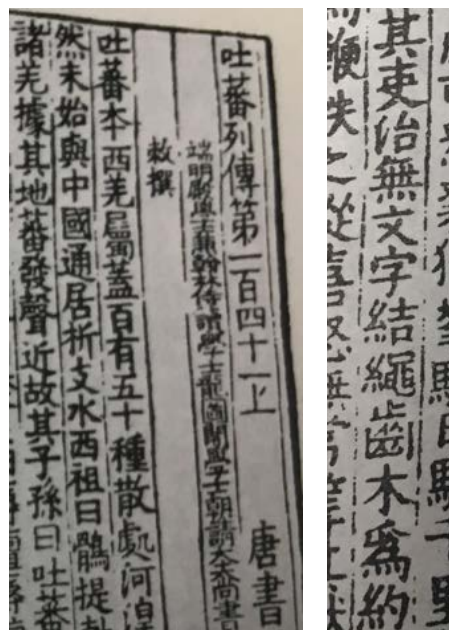 吐蕃列傳第一百四十一上 唐書
端明殿學士兼翰林侍讀學士龍圖閣學士朝請大夫尚書
敕撰
吐蕃本西羌屬蓋百有五十種散處河湟
然未始與中國通居析支水西祖曰鶻提
諸羌據其地蕃發聲近故其子孫曰吐蕃
其吏治無文字結繩齒木爲約
鞭抶之從喜怒無常